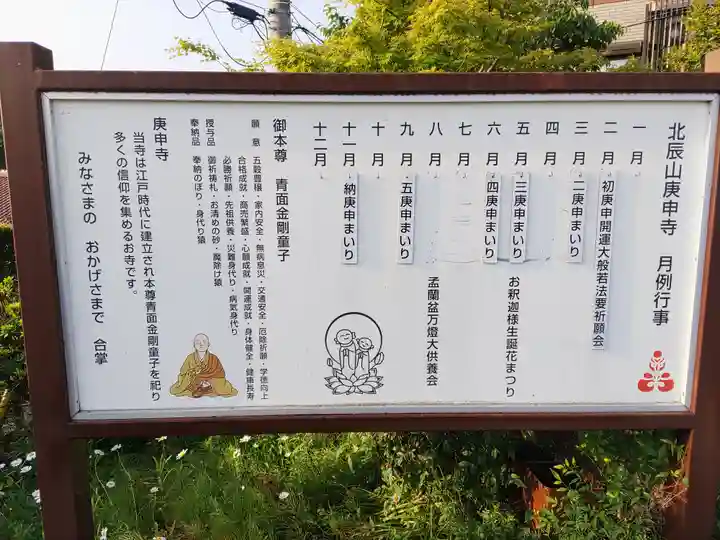 北辰山庚申寺　月例行事
一月
二月　初庚申開運大般若法要祈願会
三月　二庚申まいり
四月
五月　三庚申まいり　お釈迦様生誕花まつり
六月　四庚申まいり
七月
八月　盂蘭盆万燈大供養会
九月　五庚申まいり
十月
十一月　納庚申まいり
十二月
御本尊　青面金剛童子
願意　五穀豊穣・家内安全・無病息災・交通安全・厄除祈願・学徳向上
合格成就・商売繁盛・心願成就・開運成就・身体健全・健康長寿
必勝祈願・先祖供養・災難身代り・病気身代り
授与品　御祈祷札・お清めの砂・魔除け猿
奉納品　奉納のぼり・身代り猿
庚申寺
当寺は江戸時代に建立され本尊青面金剛童子を祀り
多くの信仰を集めるお寺です。
みなさまの　おかげさまで　合掌